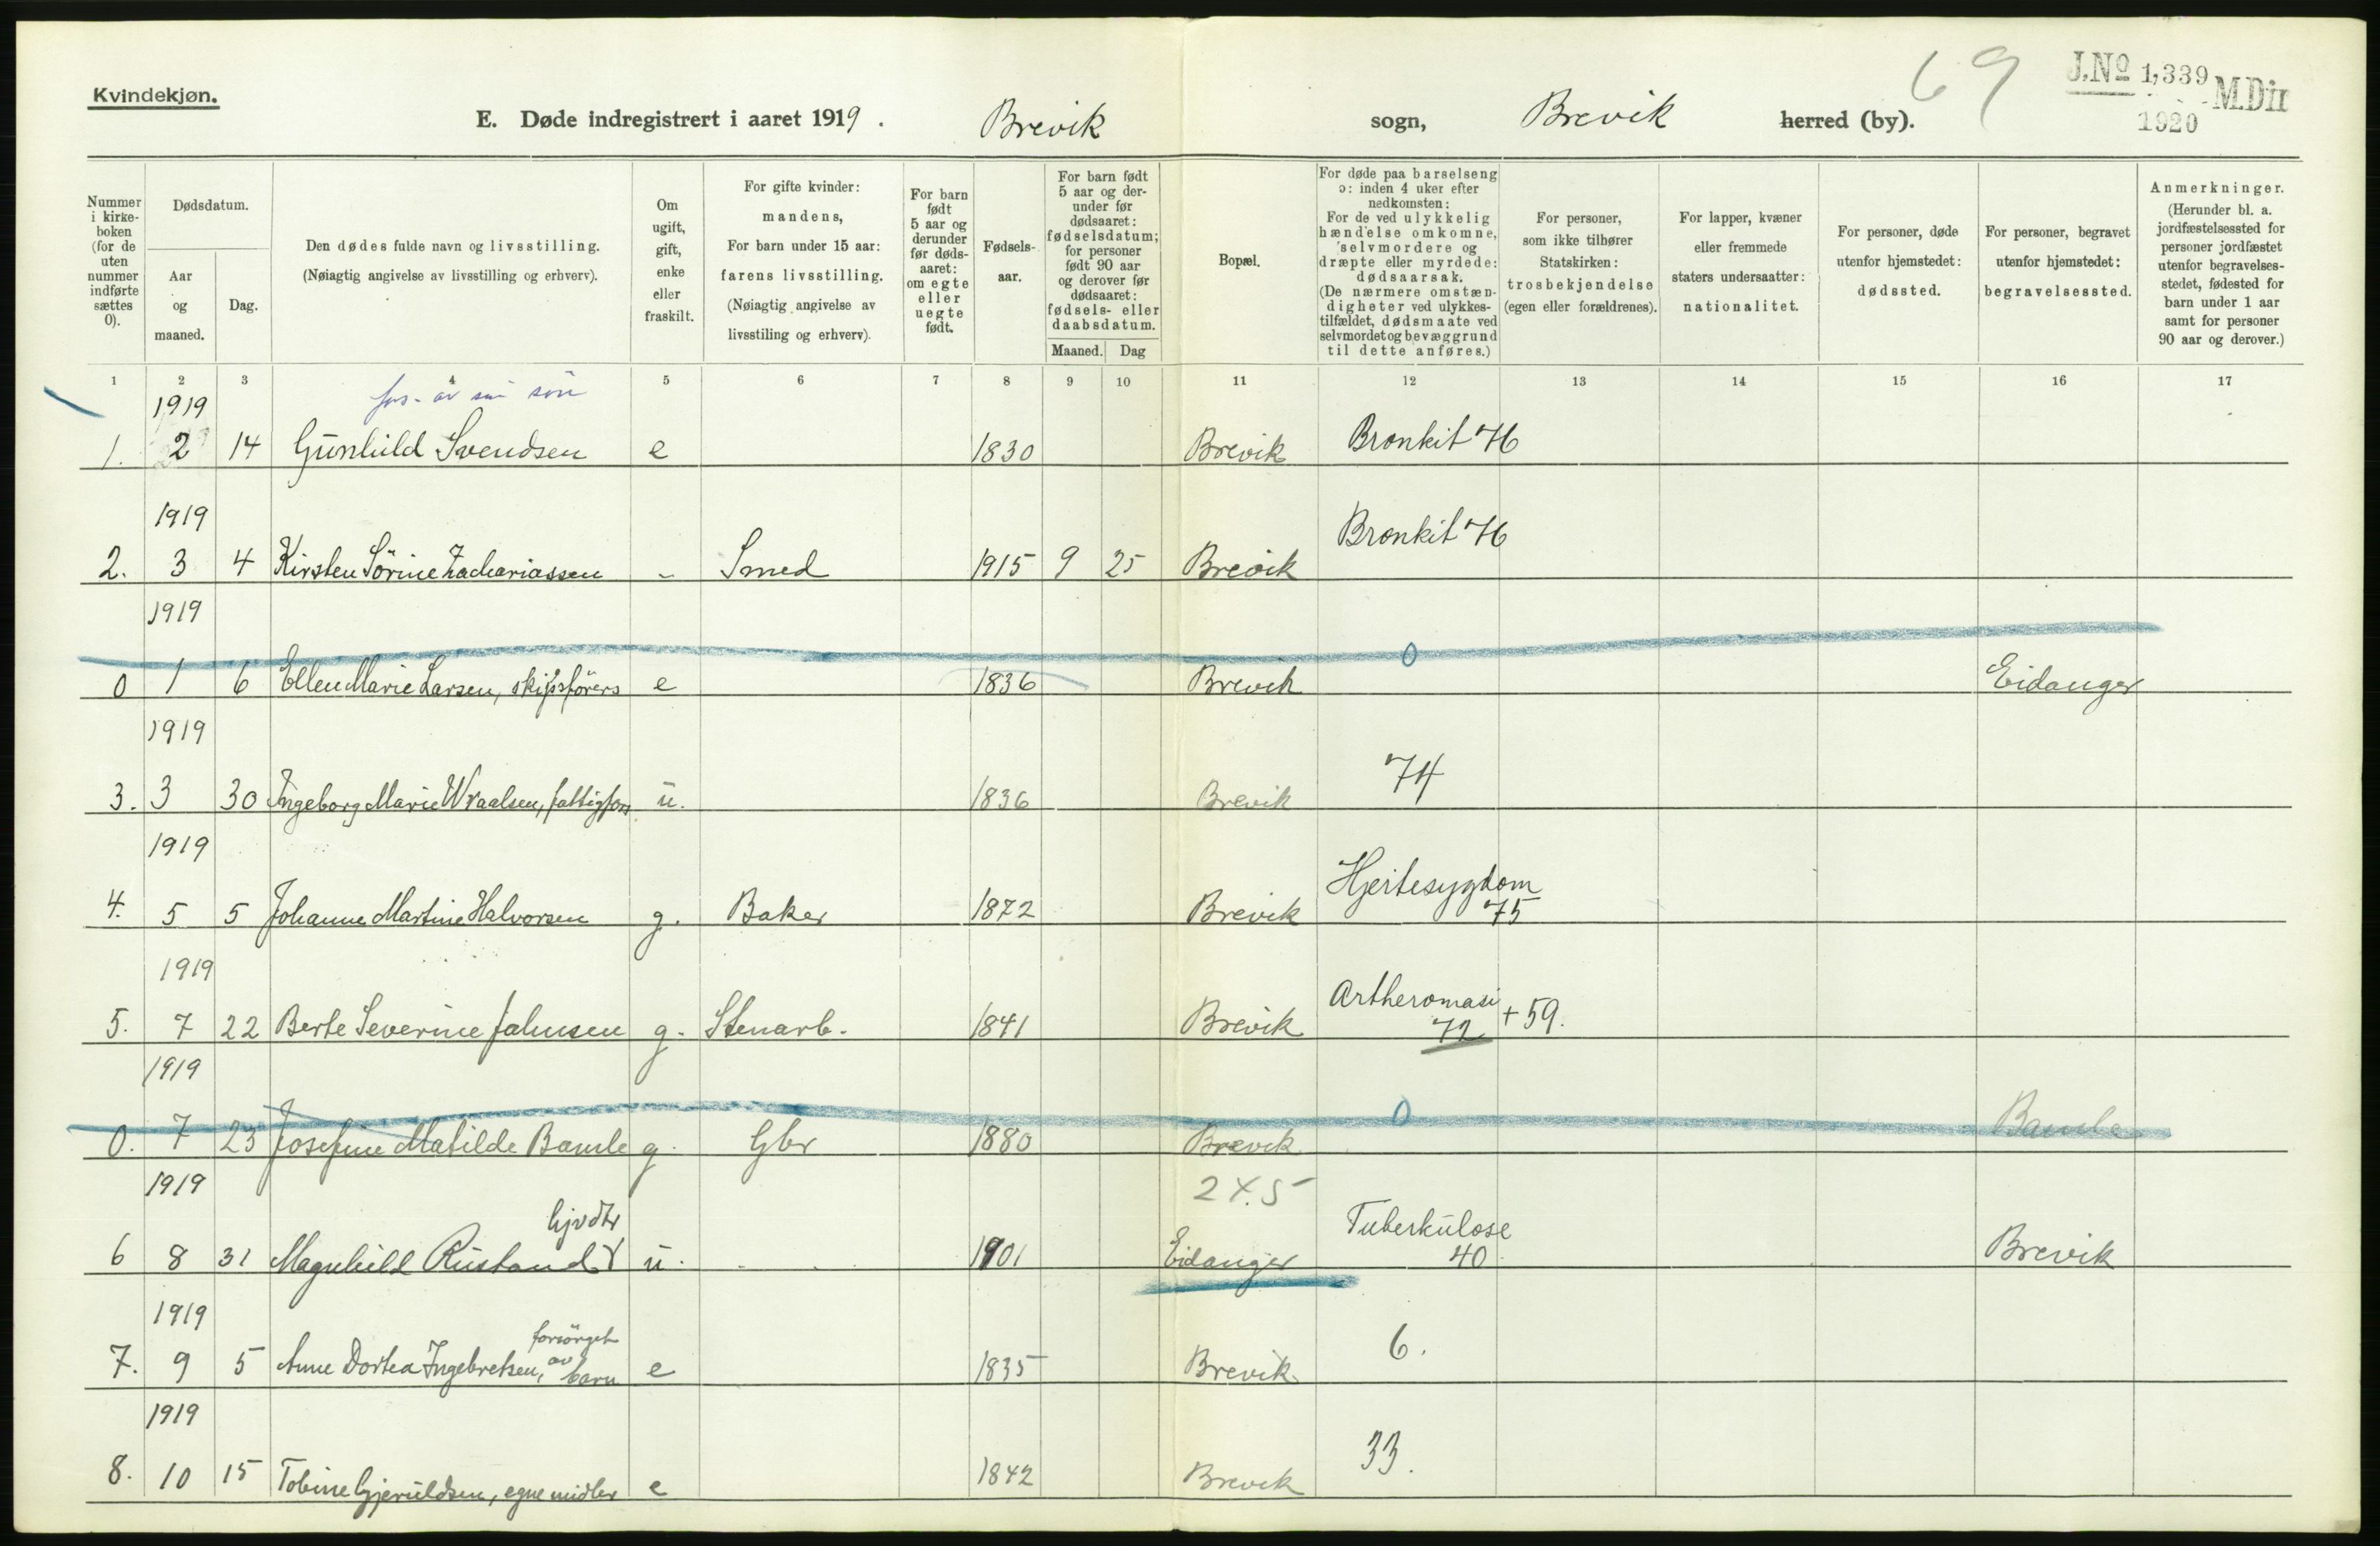 Kvindekjøn.
E. Døde indregistrert i aaret 1919. Brevik sogn, Brevik herred (by).
69
J.Nº 1,339 M.DII
1920
Nummer i kirkeboken (for de uten nummer indførte sættes 0).
Dødsdatum.
Aar og maaned.
Dag.
Den dødes fulde navn og livsstilling.
(Nøiagtig angivelse av livsstilling og erhverv).
Om ugift, gift, enke eller fraskilt.
For gifte kvinder: mandens,
For barn under 15 aar: farens livsstilling.
(Nøiagtig angivelse av livsstiling og erhverv).
For barn født 5 aar og derunder før dødsaaret: om egte eller uegte født.
Fødselsaar.
For barn født 5 aar og derunder før dødsaaret: fødselsdatum; for personer født 90 aar og derover før dødsaaret: fødsels- eller daabsdatum.
Maaned. Dag
Bopæl.
For døde paa barselseng ɔ: inden 4 uker efter nedkomsten:
For de ved ulykkelig hændelse omkomne, selvmordere og dræpte eller myrdede: dødsaarsak.
(De nærmere omstændigheter ved ulykkestilfældet, dødsmaate ved selvmordet og bevæggrund til dette anføres.)
For personer, som ikke tilhører Statskirken: trosbekjendelse (egen eller forældrenes).
For lapper, kvæner eller fremmede staters undersaatter: nationalitet.
For personer, døde utenfor hjemstedet: dødssted.
For personer, begravet utenfor hjemstedet: begravelsessted.
Anmerkninger.
(Herunder bl. a. jordfæstelsessted for personer jordfæstet utenfor begravelsesstedet, fødested for barn under 1 aar samt for personer 90 aar og derover.)
1 2 3 4 5 6 7 8 9 10 11 12 13 14 15 16 17
1919 fors. av sin søn
1. 2 14 Gunhild Svendsen e 1830 Brevik Bronkit 76
1919
2. 3 4 Kirsten Sørine Zachariassen - Smed 1915 9 25 Brevik Bronkit 76
1919
0 1 6 Ellen Marie Larsen, skipsførers e 1836 Brevik 0 Eidanger
1919
3. 3 30 Ingeborg Marie Wraalsen, fattigfors. u. 1836 Brevik 74
1919
4. 5 5 Johanne Martine Halvorsen g. Baker 1872 Brevik Hjertesygdom 75
1919
5. 7 22 Berte Severine Jahnsen g. Stenarb. 1841 Brevik Artheromasi 72 + 59.
1919
0. 7 23 Josefine Matilde Bamle g. Gbr 1880 Brevik 0 Bamle
1919 24.5
6 8 31 Magnhild Rustand Gjvdtr u. 1901 Eidanger Tuberkulose 40 Brevik
1919
7. 9 5 Anne Dortea Ingebretsen, forsørget av barn e 1835 Brevik 6.
1919
8. 10 15 Tobine Gjeruldsen, egne midler e 1842 Brevik 33.